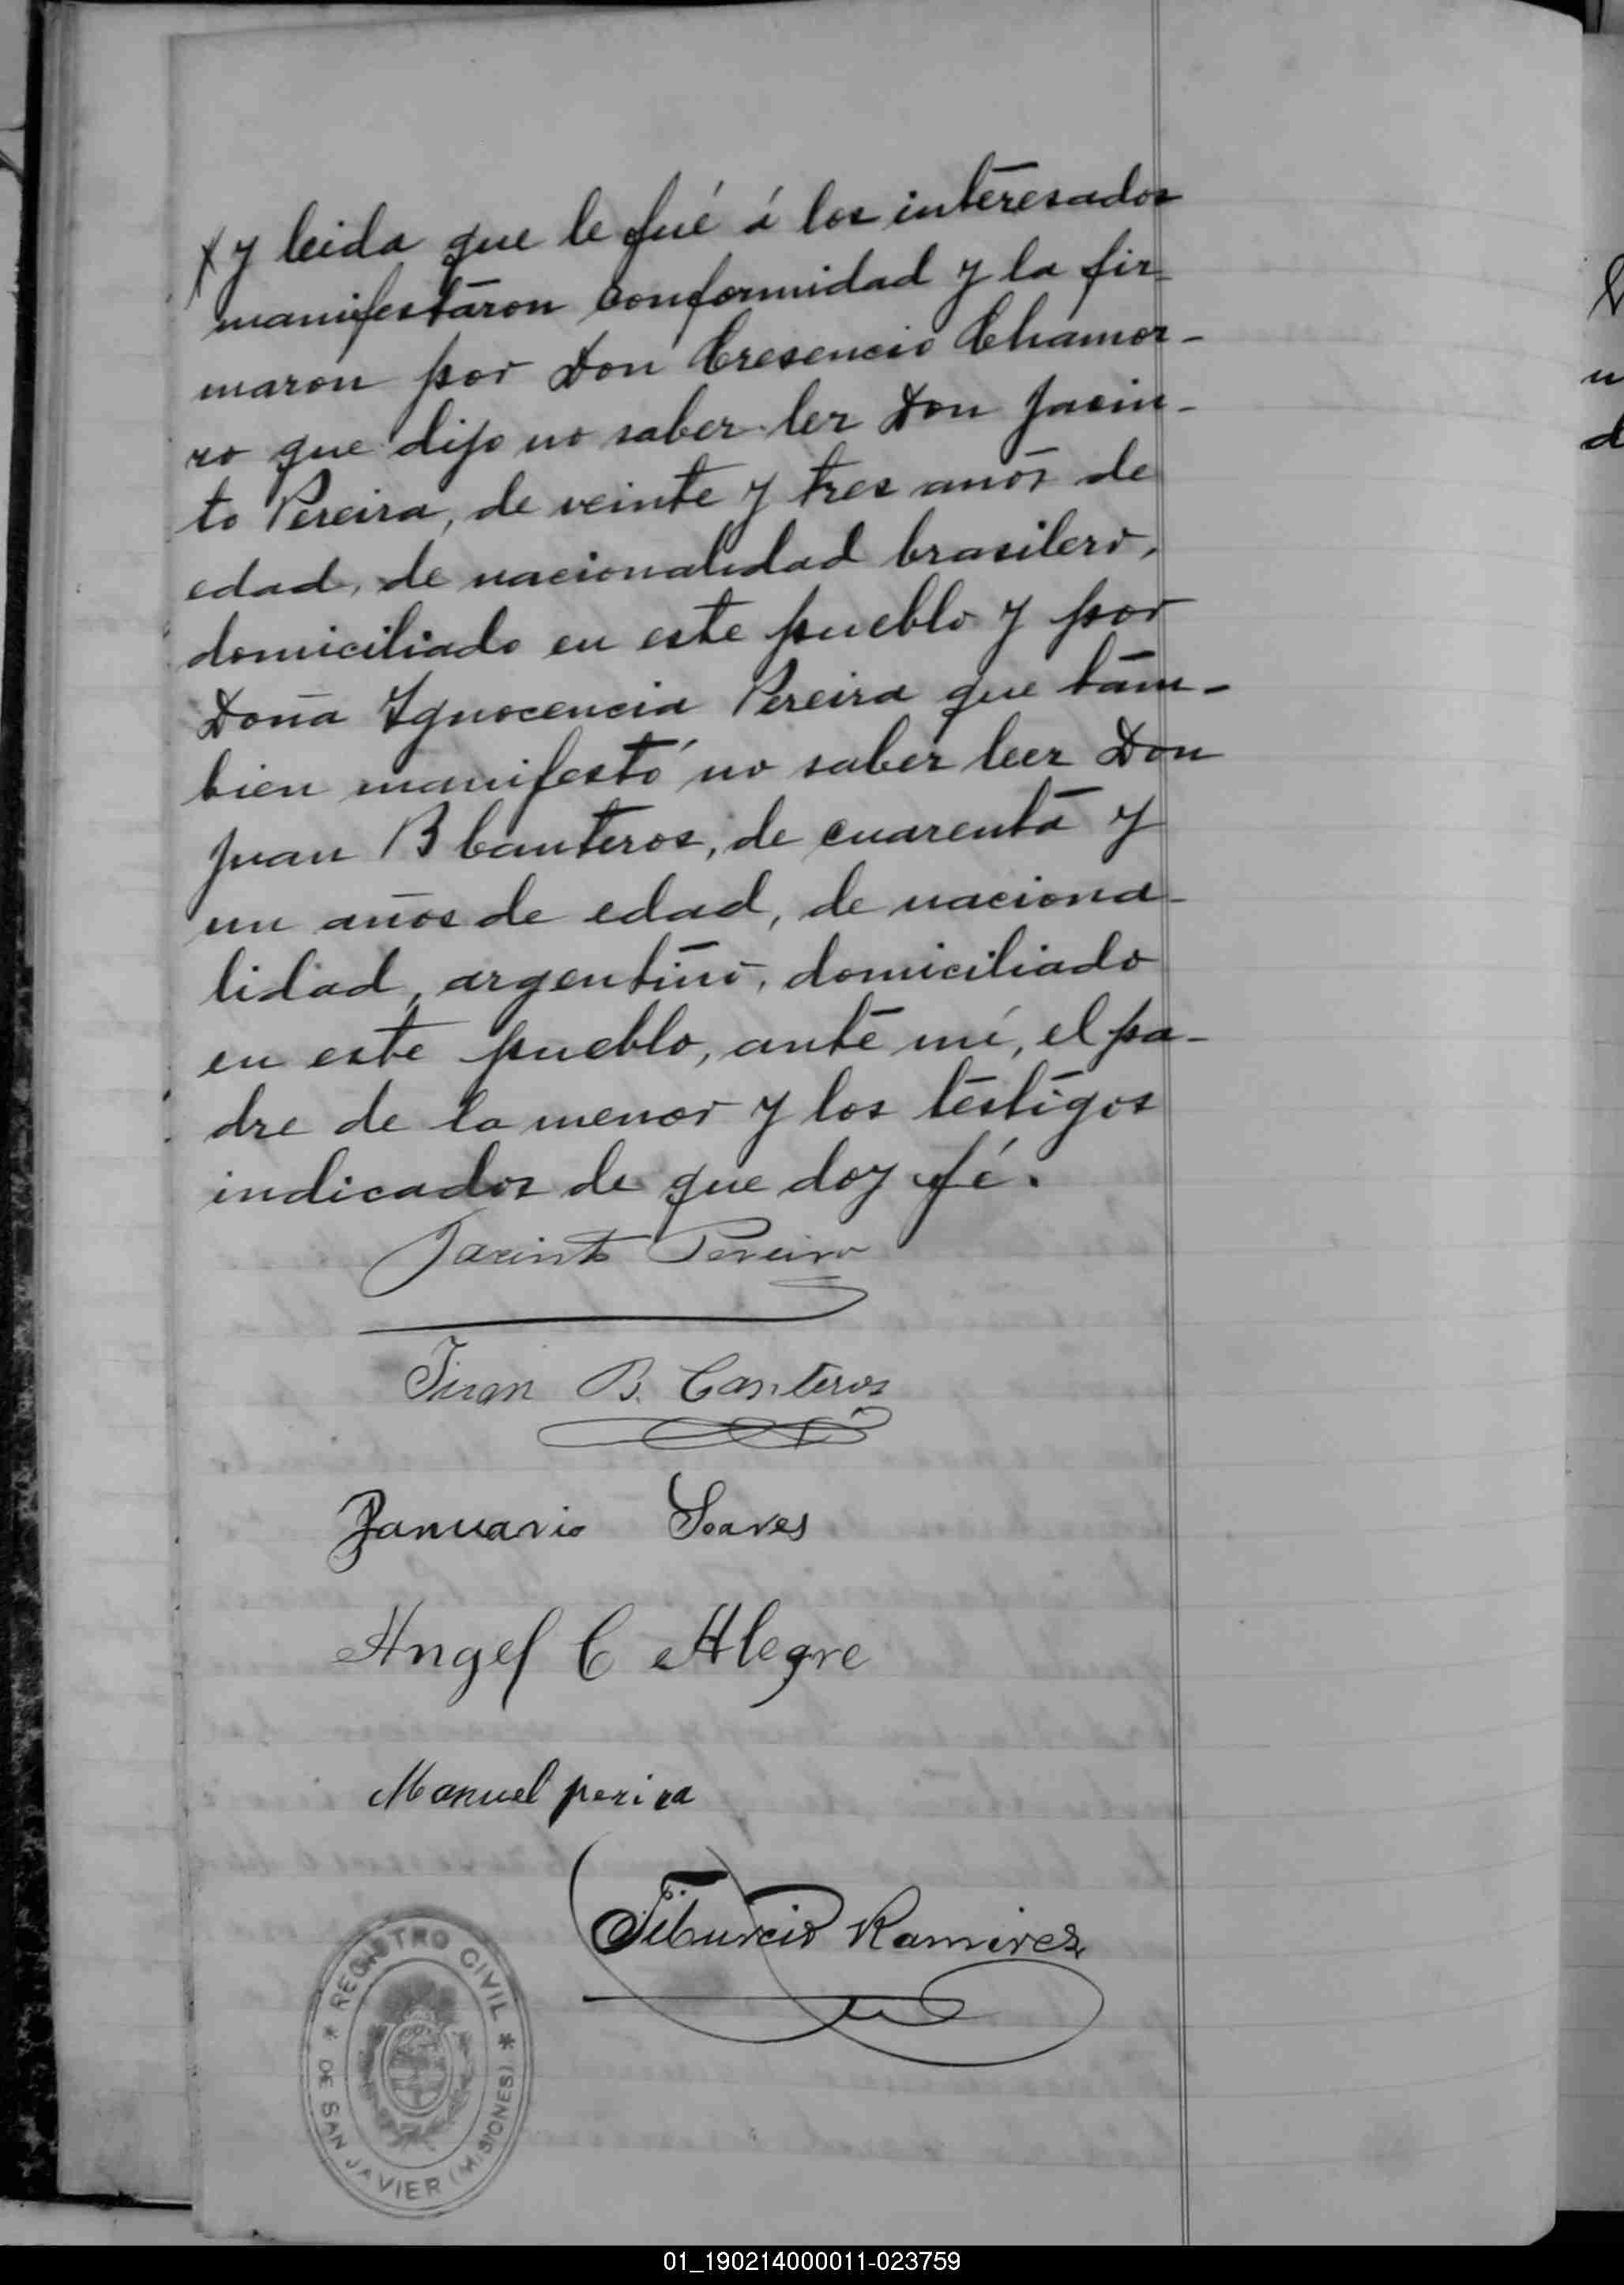 y leida que le fué á los interesados
manifestaron conformidad y la fir
maron por Don Cresencio Chamor-
ro que dijo no saber ler Don Jacin-
to Pereira, de veinte y tres años de
edad, de nacionalidad brasilero,
domiciliado en este pueblo y por
Doña Ygnocencia Pereira que tam-
bien manifestó no saber leer Don
Juan B Canteros, de cuarenta y
un años de edad, de naciona-
lidad, argentino, domiciliado
en este pueblo, ante mí, el pa-
dre de la menor y los testigos
indicados de que doy fé.
Jacinto Pereira
Juan B. Canteros
Januario Soares
Angel C Alegre
Manuel perira
Tiburcio Ramirez
REGISTRO CIVIL
* DE SAN JAVIER (MISIONES) *
01_190214000011-023759